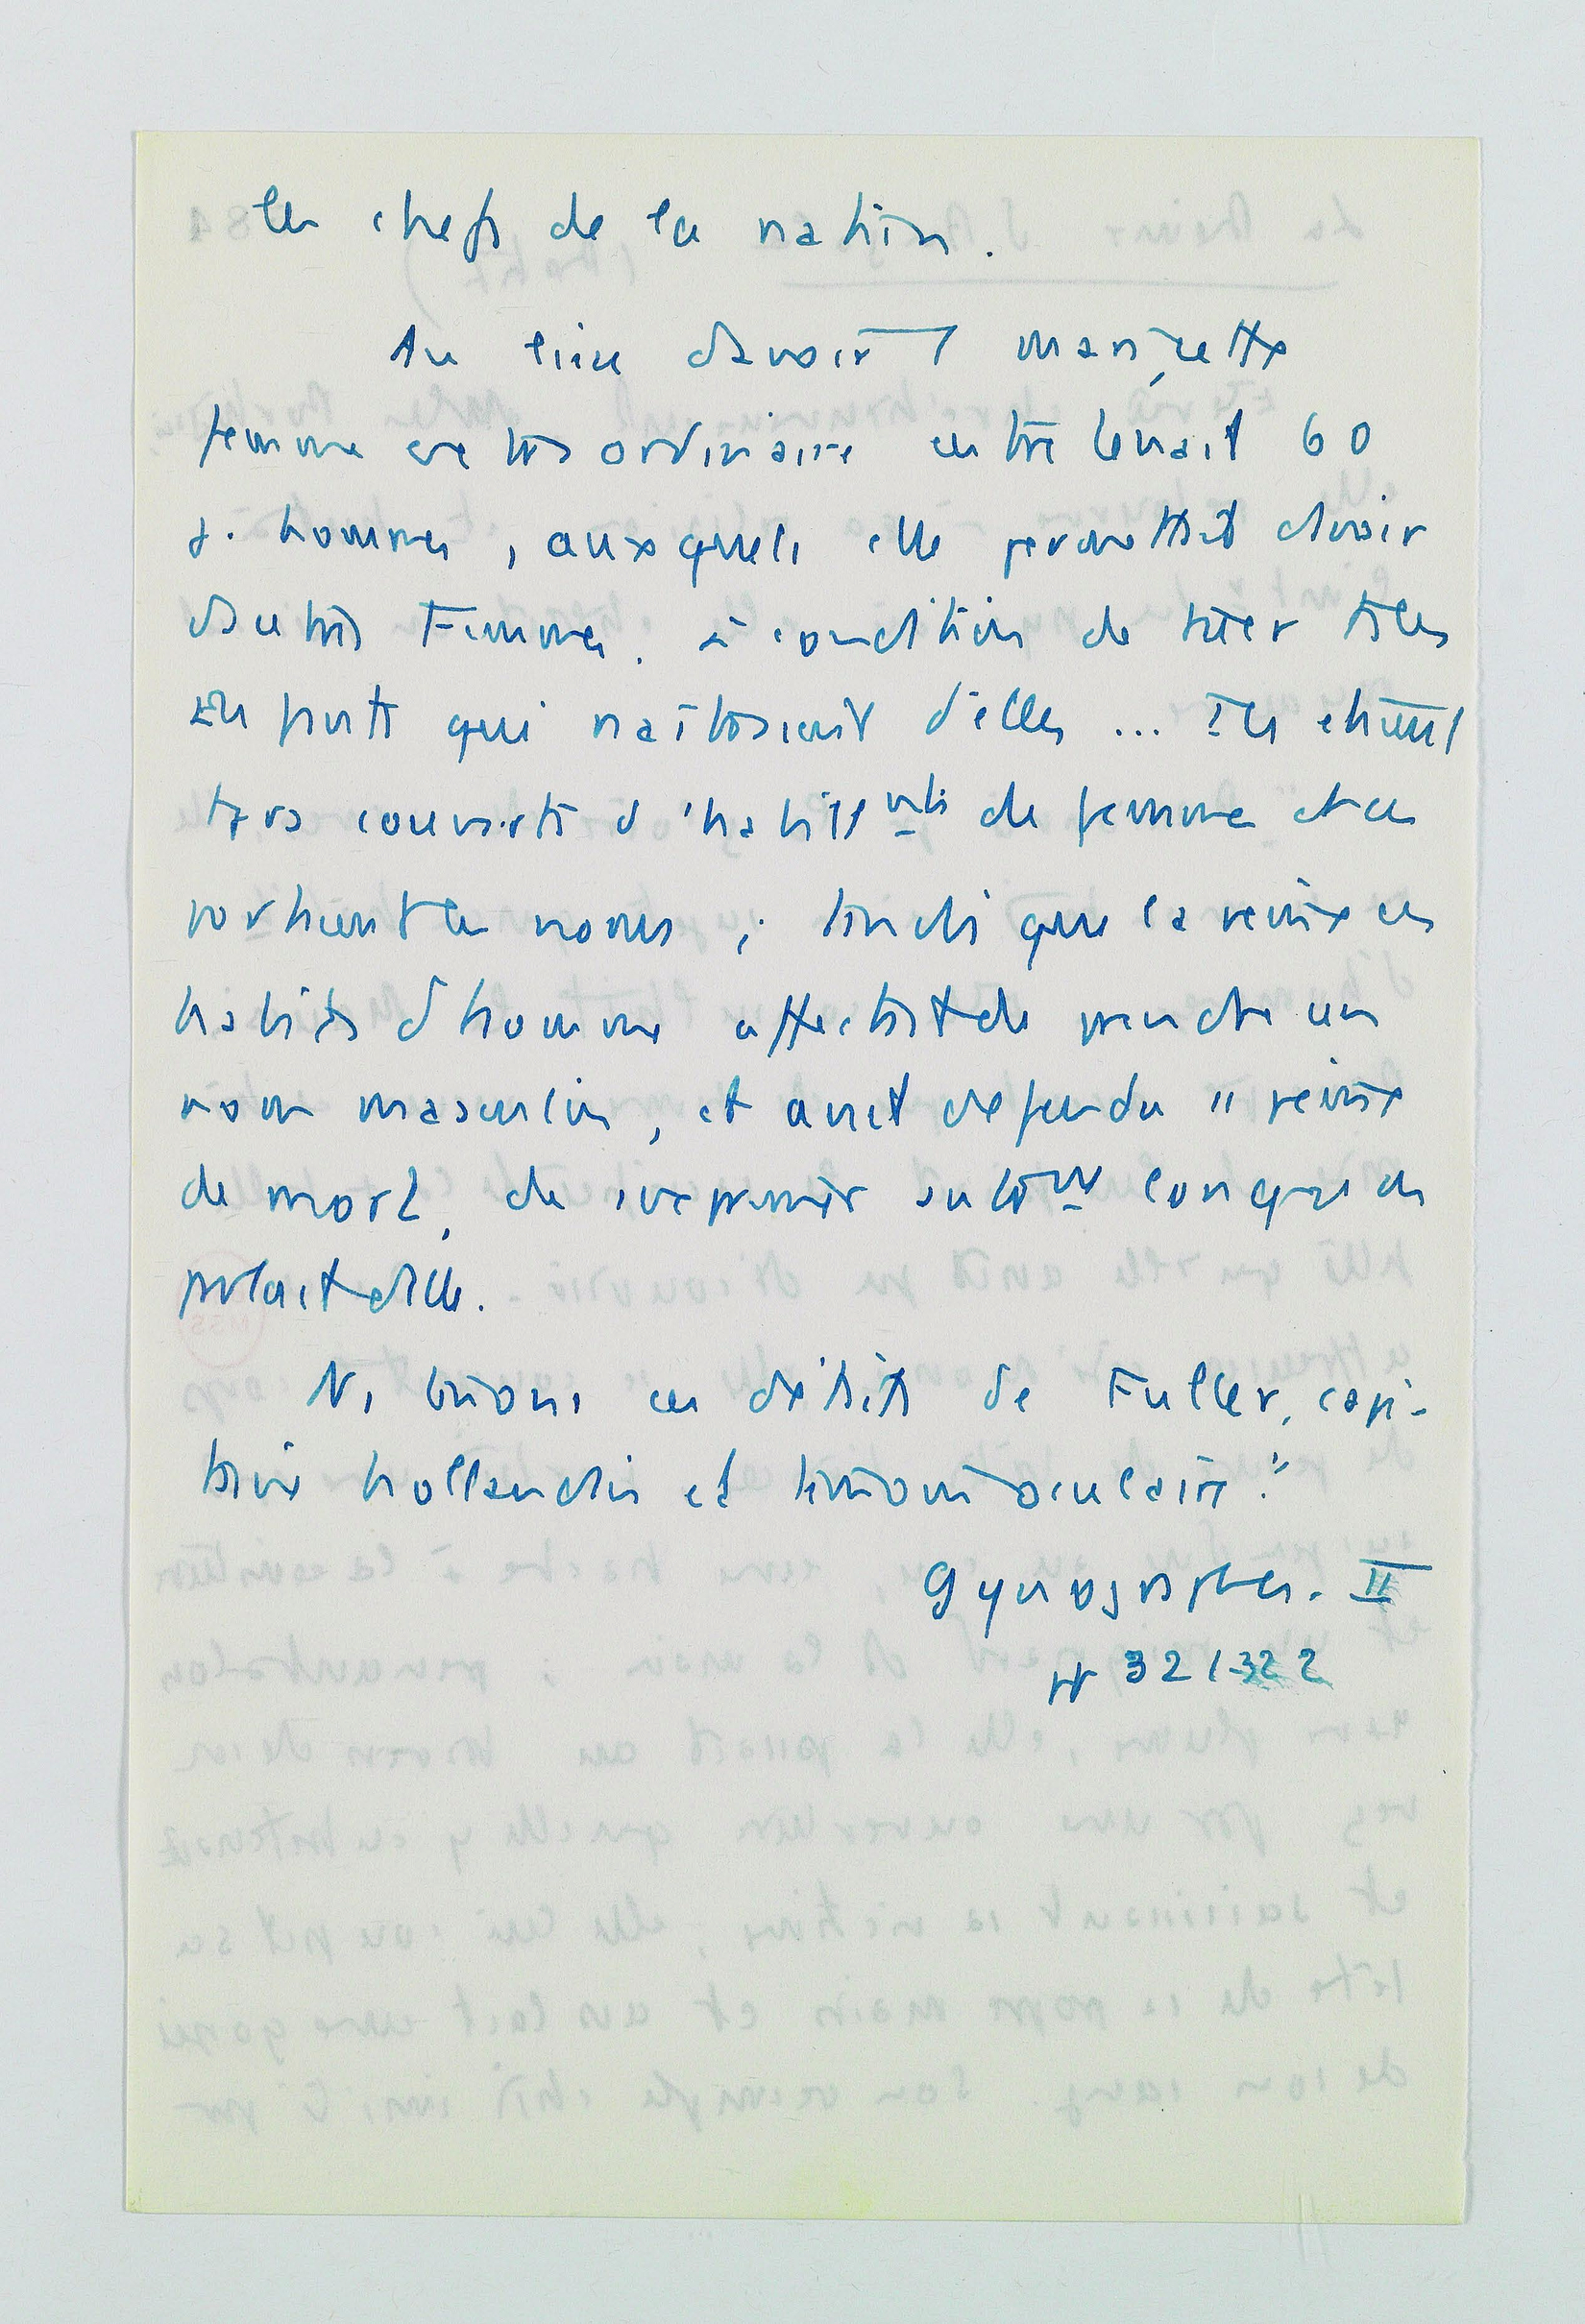 les chefs de la nation.
Au lieu d'avoir 1 mari, cette
femme extraordinaire entretenait 60
j. hommes, auxquels elle permettait d'avoir
d'autres femmes. à condition de tuer tous les
enfants qui naîtraient d'elles ... Ils étaient
tous couverts d'habill<sup>nts</sup> de femme et en
portaient les noms ; tandis que la reine en
habits d'homme affectait de prendre un
nom masculin, et avait défendu " peine
de mort, de exprimer autr<sup>nt</sup> lorsqu'on
parlait d'elle.
Ns tenons ces détails de Fuller, capi-
taine hollandais et témoin oculaire."
Gynographes. II
pp 321-322